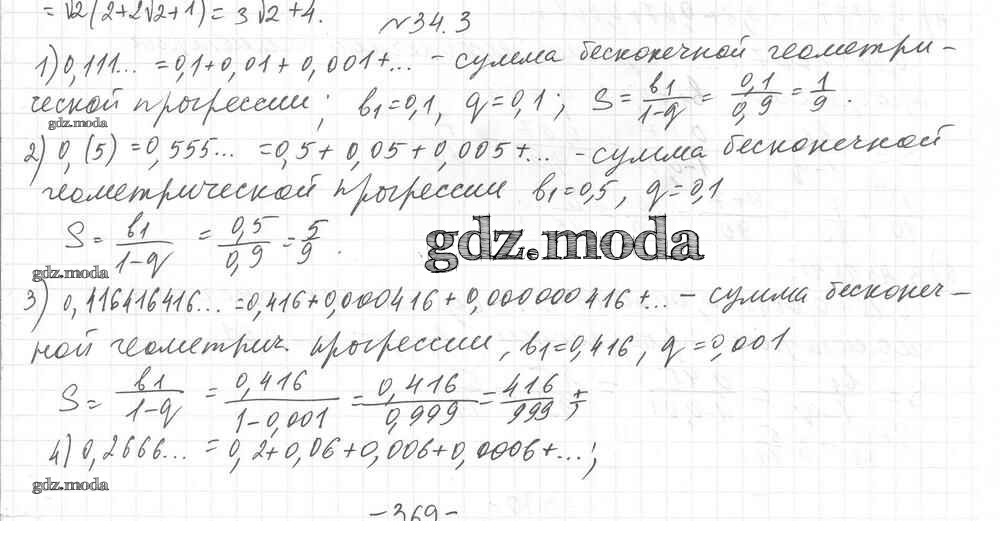 = √2(2+2√2+1) = 3√2+4.
№34.3
1) 0,111... = 0,1+0,01+0,001+... – сумма бесконечной геометри-
ческой прогрессии; b₁=0,1, q=0,1; S = b₁/(1-q) = 0,1/0,9 = 1/9.
gdz.moda
2) 0,(5) = 0,555... = 0,5+0,05+0,005+... – сумма бесконечной
геометрической прогрессии b₁=0,5, q=0,1
S = b₁/(1-q) = 0,5/0,9 = 5/9.
gdz.moda
gdz.moda
3) 0,416416416... = 0,416+0,000416+0,000000416+... – сумма бесконеч-
ной геометрич. прогрессии, b₁=0,416, q=0,001
S = b₁/(1-q) = 0,416/(1-0,001) = 0,416/0,999 = 416/999
4) 0,2666... = 0,2+0,06+0,006+0,0006+...;
gdz.moda
-369-